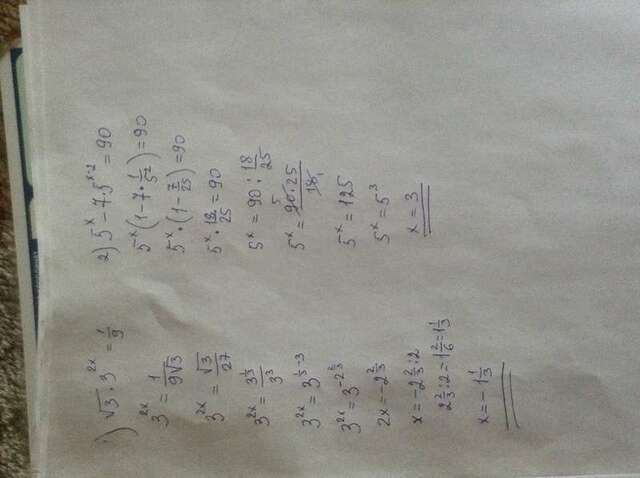 1) √3 · 3^{2x} = 1/9
3^{2x} = 1/(9√3)
3^{2x} = √3/27
3^{2x} = 3^{1/3}/3^3
3^{2x} = 3^{1/3-3}
3^{2x} = 3^{-2 2/3}
2x = -2 2/3
x = -2 2/3 : 2
2 2/3 : 2 = 1 2/6 = 1 1/3
x = -1 1/3
2) 5^x - 7·5^{x-2} = 90
5^x (1 - 7 · 1/5^2) = 90
5^x · (1 - 7/25) = 90
5^x · 18/25 = 90
5^x = 90 : 18/25
5^x = 90·25/18
5^x = 125
5^x = 5^3
x = 3